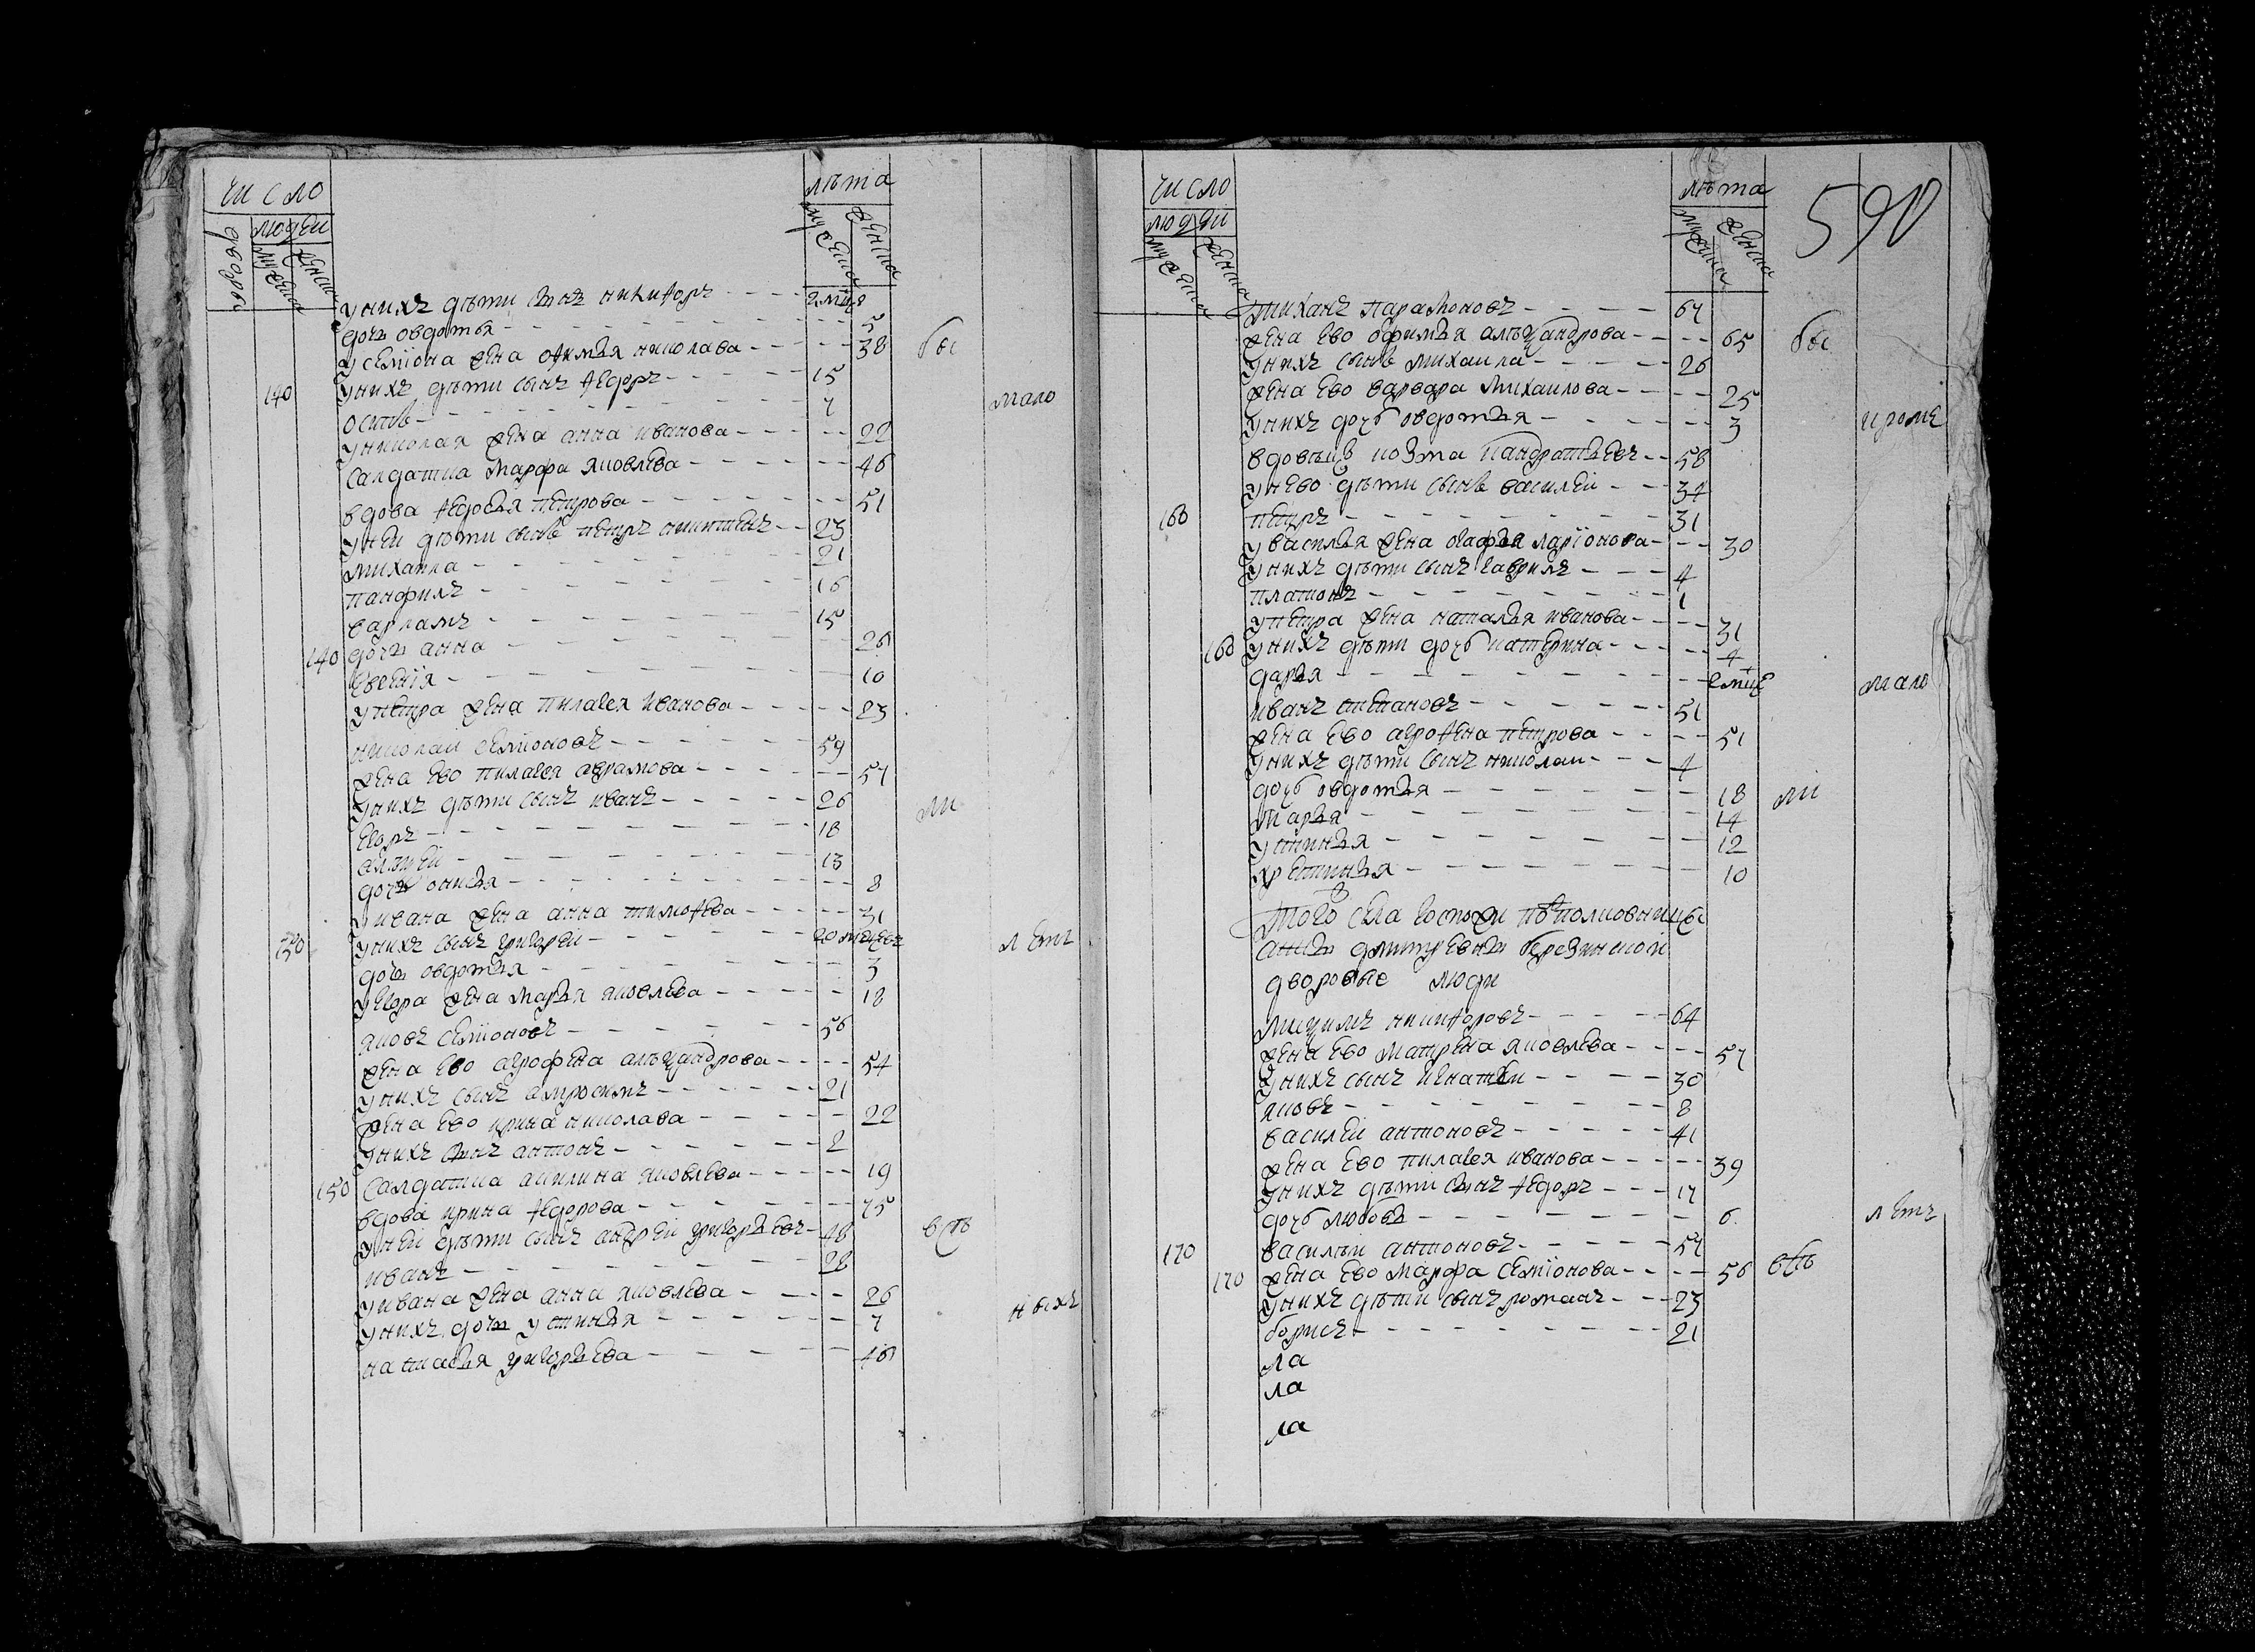 число
лѣта
дворы
людеи
мужеска
женска
мужеска
женска
у нихъ дѣти сынъ никиѳоръ - - - - 2 мцѧ
дочь овдотья - - - - - 5
у семіона жена оѳимья николава - - - - - 38
бы
140 у нихъ дѣти сынъ ѳедоръ - - - - - 15
мало
осипъ - - - - - 7
у николая жена анна иванова - - - - - 22
салдатка марфа яковлева - - - - - 46
вдова ѳедосья петрова - - - - - 51
у неи дѣти сынъ петръ никитевъ - - 23
михаила - - - - - 21
панфилъ - - - - - 16
варламъ - - - - - 15
140 дочь анна - - - - - 26
евгенія - - - - - 10
у петра жена пилагея иванова - - - - - 23
николаи семіоновъ - - - - - 59
жена ево пилагея аврамова - - - - - 57
у нихъ дѣти сынъ иванъ - - - - - 26
ли
егоръ - - - - - 18
алѣксеи - - - - - 13
дочь - - - - - 8
у ивана жена анна тимоѳева - - - - - 31
150 у нихъ сынъ григореи - - - - - 20 мцевъ
летъ
дочь овдотья - - - - - 3
у егора жена марья яковлева - - - - - 18
яковъ семіоновъ - - - - - 56
жена ево агрофена алѣѯандрова - - - - 54
у нихъ сынъ амросимъ - - - - - 21
жена ево ирина николава - - - - - 22
у нихъ сынъ антонъ - - - - - 2
150 салдатка акилина яковлева - - - - - 19
вдова ирина ѳедорова - - - - - 75
у неи дѣти сынъ андреи григорьевъ - 48
всѣ
иванъ - - - - - 28
у ивана жена анна яковлева - - - - 26
у нихъ дочь устинья - - - - - 7
ныхъ
настасья григорьева - - - - - 46
число
лѣта
590
люди
мужеска
женска
мужеска
женска
тиханъ парамоновъ - - - - - 67
жена ево офимья алѣѯандрова - - - - 65
бы
у нихъ сынъ михаила - - - - - 26
жена ево варвара михаилова - - - - 25
у нихъ дочь овдотья - - - - - 3
кромѣ
вдовецъ козма кандратьевъ - - 58
у нево дѣти сынъ василеи - - 34
160 петръ - - - - - 31
у василья жена агафья ларіонова - - - 30
у нихъ дѣти сынъ гаврилъ - - - 4
платонъ - - - - - 1
у петра жена наталья иванова - - - - 31
160 у нихъ дѣти дочь катерина - - - - - 4
дарья - - - - - 2 мцѧ
мало
иванъ степановъ - - - - - 51
жена ево агроѳена петрова - - - - 51
у нихъ дѣти сынъ николаи - - - 4
дочь овдотья - - - - - 18
ли
марья - - - - - 14
устинья - - - - - 12
хрестинья - - - - - 10
того села госпожи подполковницы
анны дмитревны березинскои
дворовые люди
никиѳоровъ - - - - - 64
жена ево матрена яковлева - - - - 57
у нихъ сынъ игнатеи - - - - 30
яковъ - - - - - 8
василеи антоновъ - - - - - 41
жена ево пилагея иванова - - - - - 39
у нихъ дѣти сынъ ѳедоръ - - - 17
дочь любовь - - - - - 6
летъ
170 василѣи антоновъ - - - - - 57
170 жена ево марфа семіонова - - - - 56
всѣ
у нихъ дѣти сынъ романъ - - - 23
борисъ - - - - - 21
ла
ла
ла